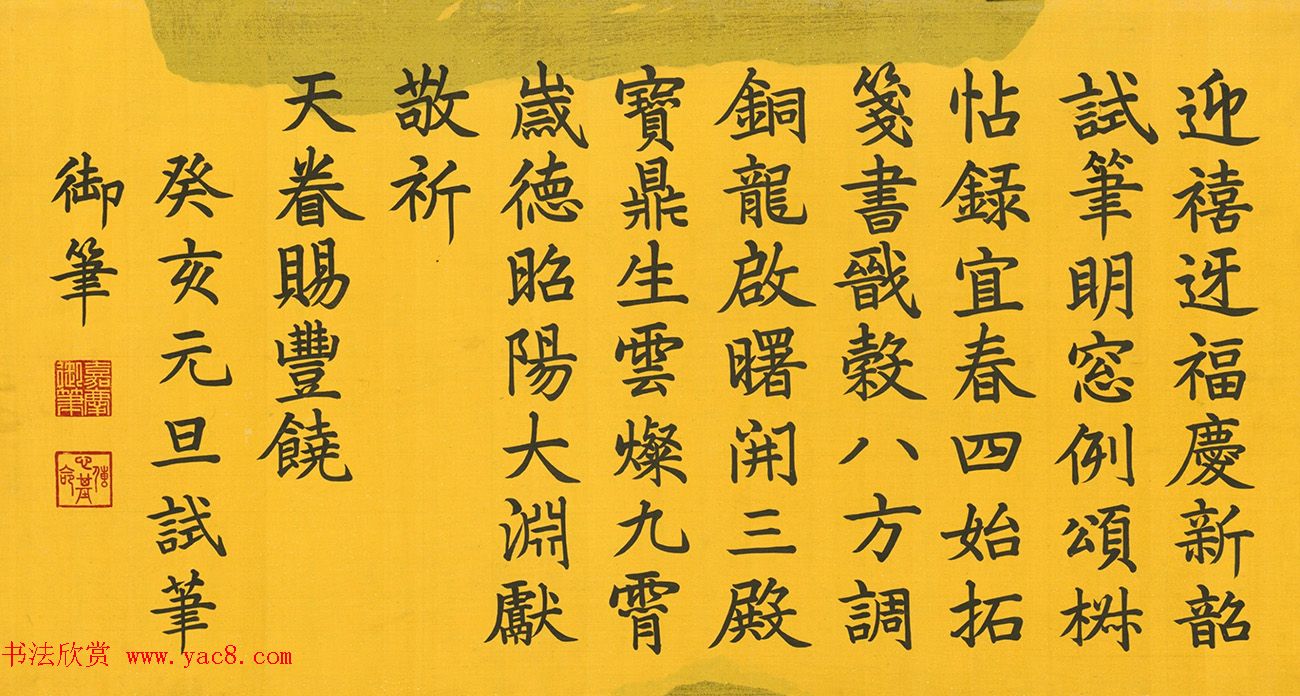 迎禧迓福慶新韶
試筆明窓例頌椒
帖録宜春四始拓
箋書戩穀八方調
銅龍啟曙開三殿
寶鼎生雲燦九霄
歲德昭陽大淵獻
敬祈
天眷賜豐饒
癸亥元旦試筆
御筆
嘉慶御筆
书法欣赏 www.yac8.com